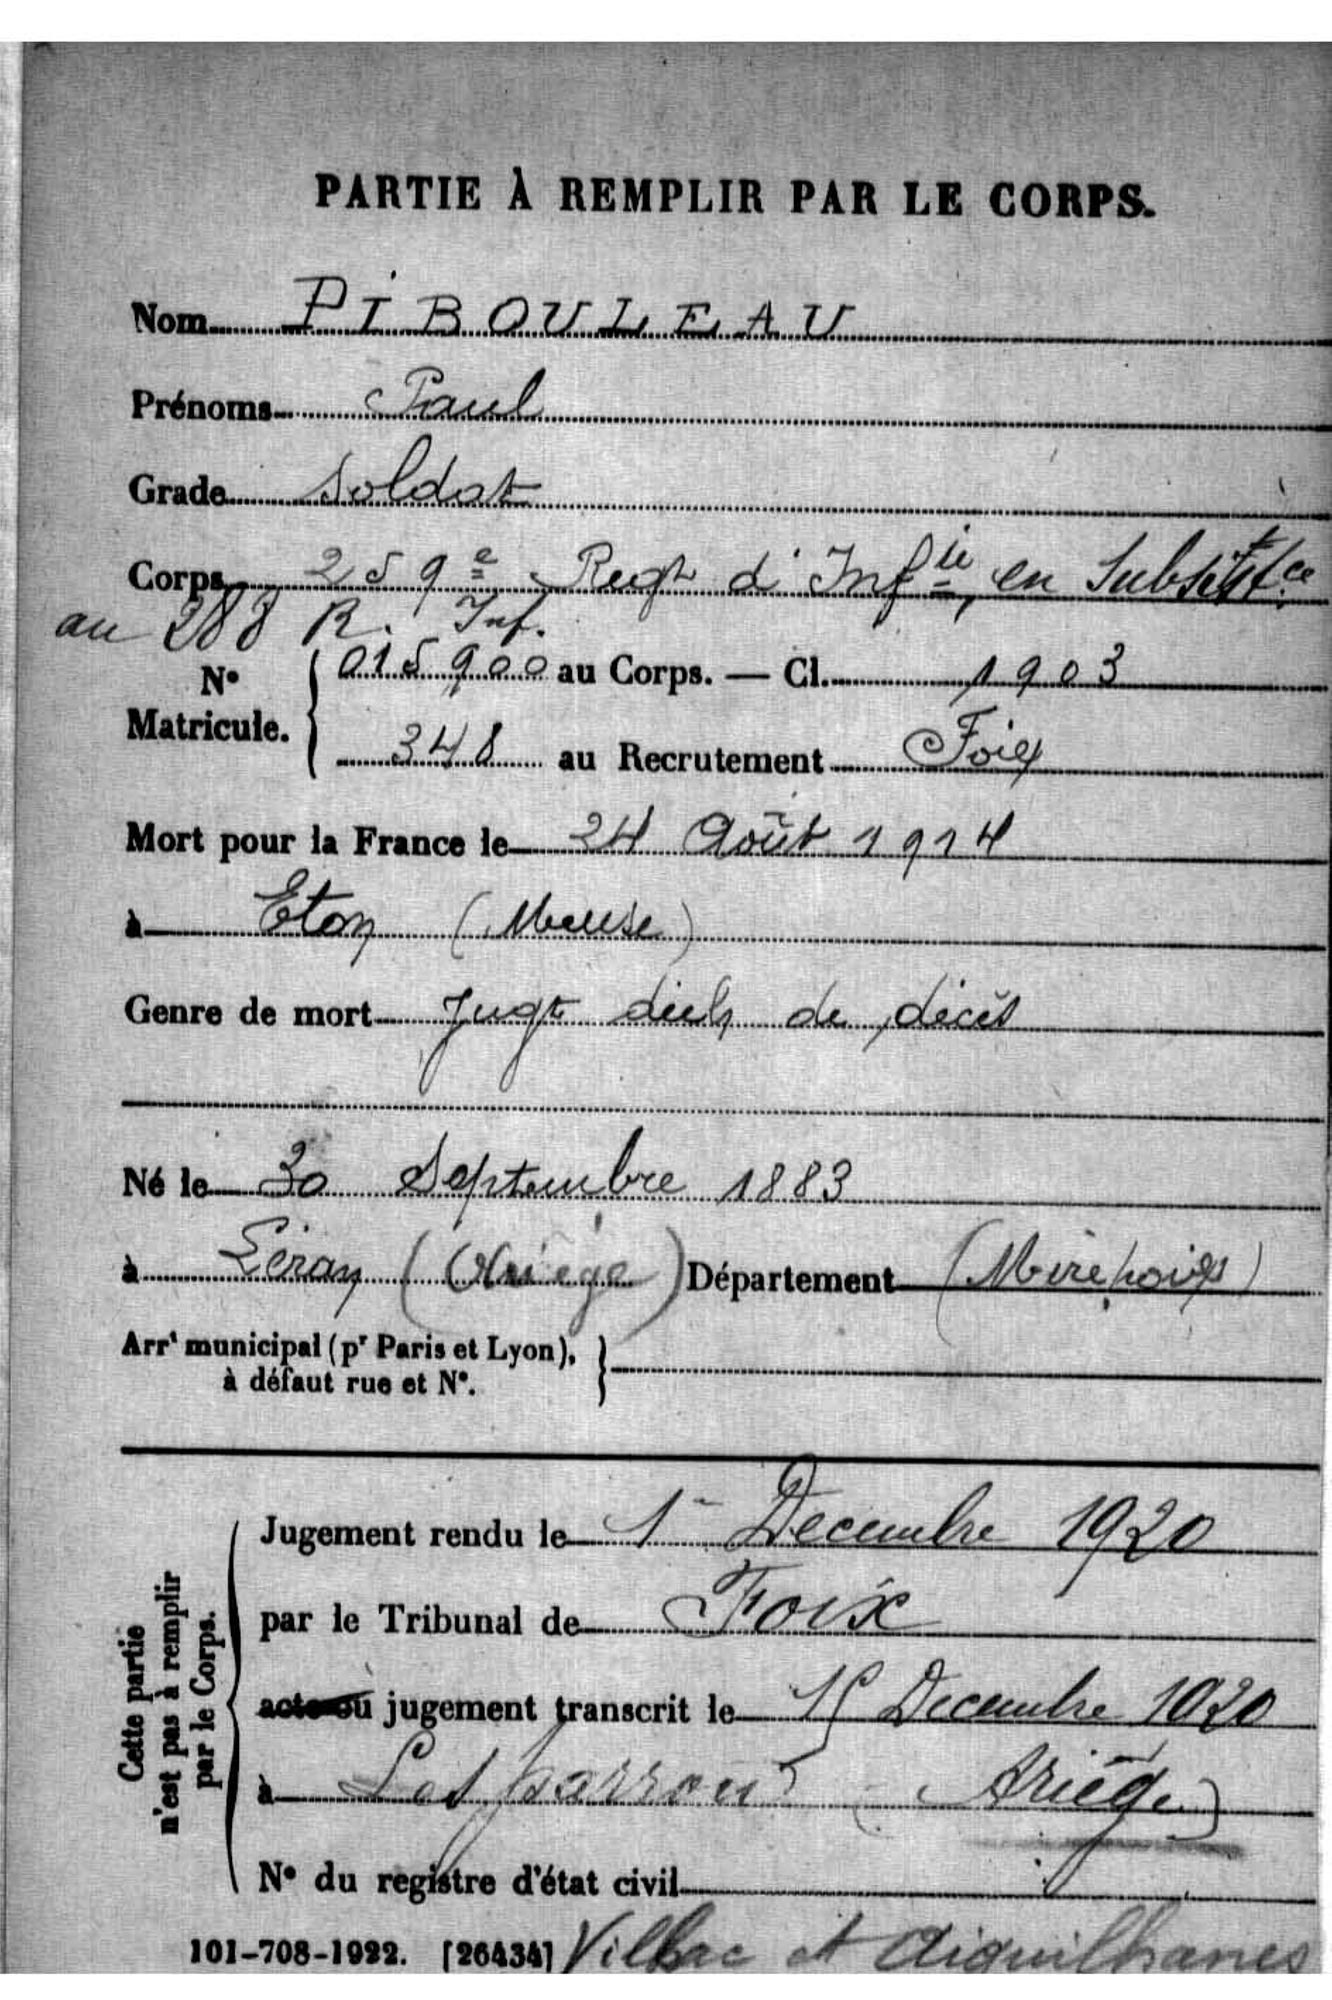 PARTIE À REMPLIR PAR LE CORPS.
Nom PIBOULEAU
Prénoms Paul
Grade Soldat
Corps 259e Regt d'Infie, en Subsistce
au 288 R. Inf.
N° Matricule. 015900 au Corps. — Cl. 1903
348 au Recrutement Foix
Mort pour la France le 24 Août 1914
à Eton (Meuse)
Genre de mort Jugt décl de décès
Né le 30 Septembre 1883
à Léran (Ariège) Département (Mirepoix)
Arrt municipal (pr Paris et Lyon),
à défaut rue et N°.
Cette partie
n'est pas à remplir
par le Corps.
Jugement rendu le 1er Decembre 1920
par le Tribunal de Foix
acte ou jugement transcrit le 15 Decembre 1920
à Limbrassac (Ariège)
N° du registre d'état civil
101-708-1922. [26434] et Aiguilhanes